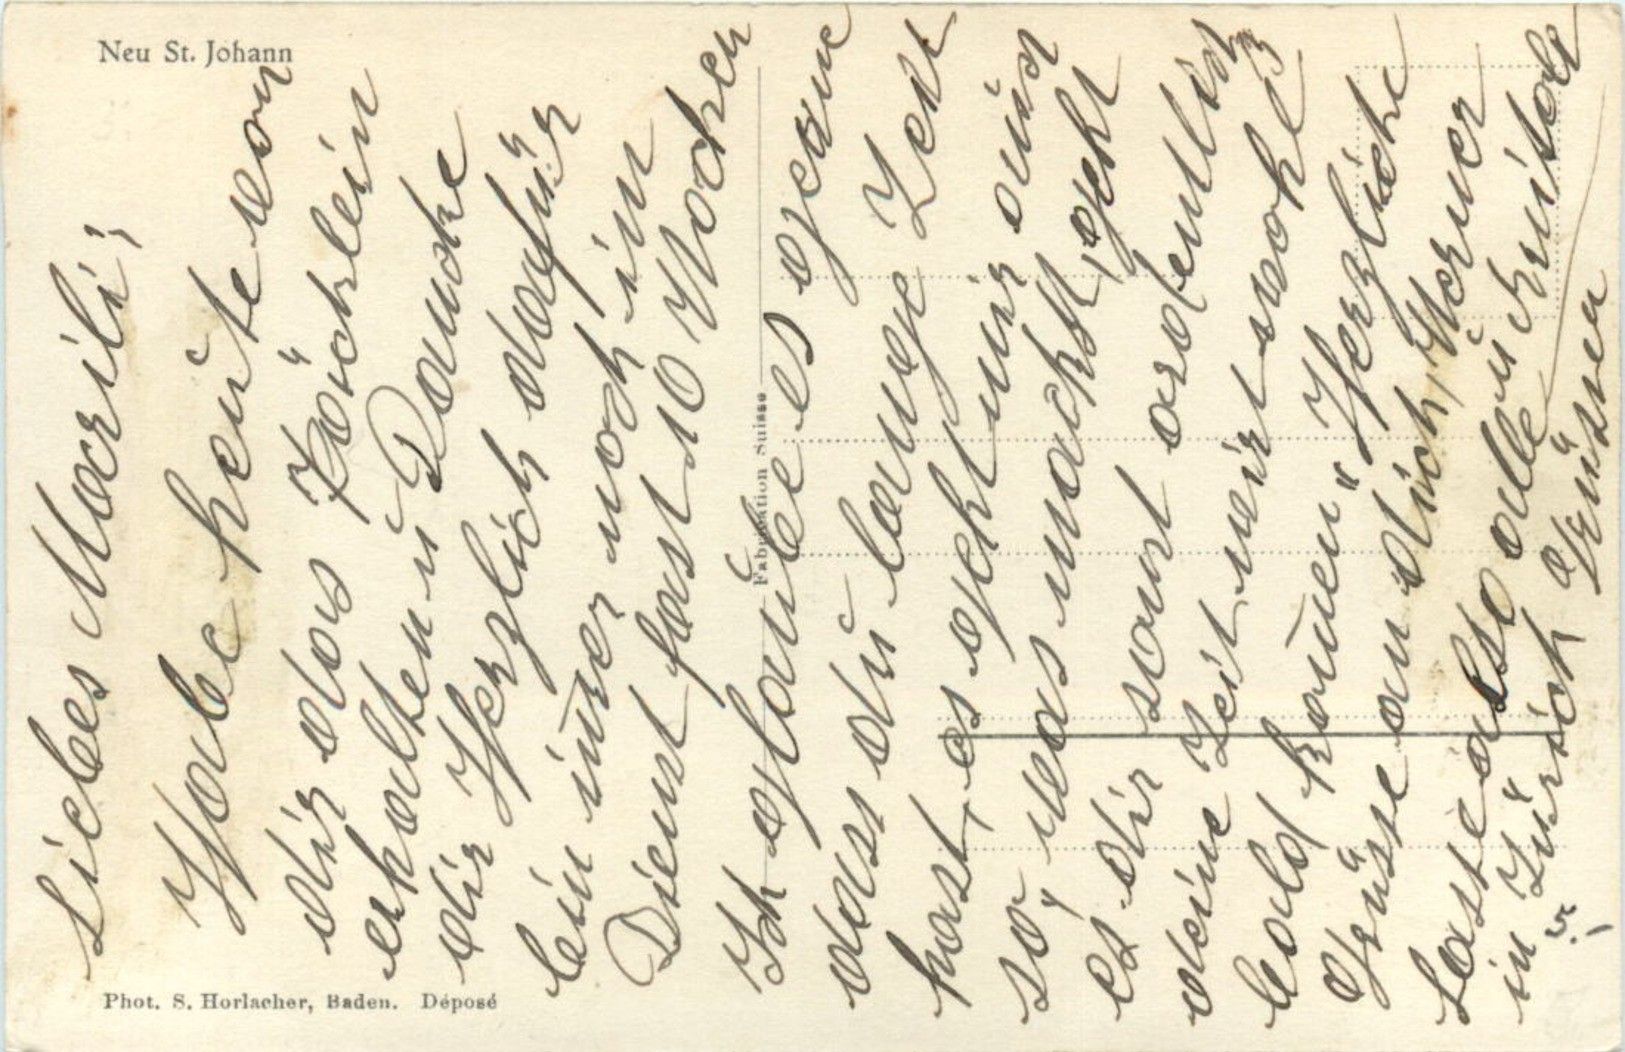 Neu St. Johann
Liebes Marili,
Habe heute von
dir das Kärtlein
erhalten u. Danke
dir Herzlich dafür
bin im̅er noch im
Dienst fast 10 Wochen
Ich glaube es gerne
dass du lange Zeit
hast, es geht mir auch
so, was machst, geht
es dir sonst ordentlich
deine Zeit wird wohl
bald kom̅en" Herzliche
Grüsse an dich, Werner
Lasse also alle u.
in Zürich grüssen
Fabrikation Suisse
Phot. S. Horlacher, Baden. Déposé